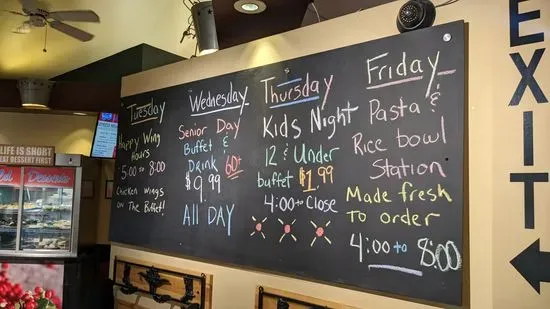 Tuesday
Happy Wing
Hours
5:00 to 8:00
Chicken wings
on The Buffet!
Wednesday
Senior Day
Buffet &
Drink 60+
$9.99
ALL DAY
Thursday
Kids Night
12 & Under
buffet $1.99
4:00 to Close
Friday
Pasta &
Rice bowl
Station
Made fresh
to order
4:00 to 8:00
EXIT
LIFE IS SHORT
EAT DESSERT FIRST
Desserts